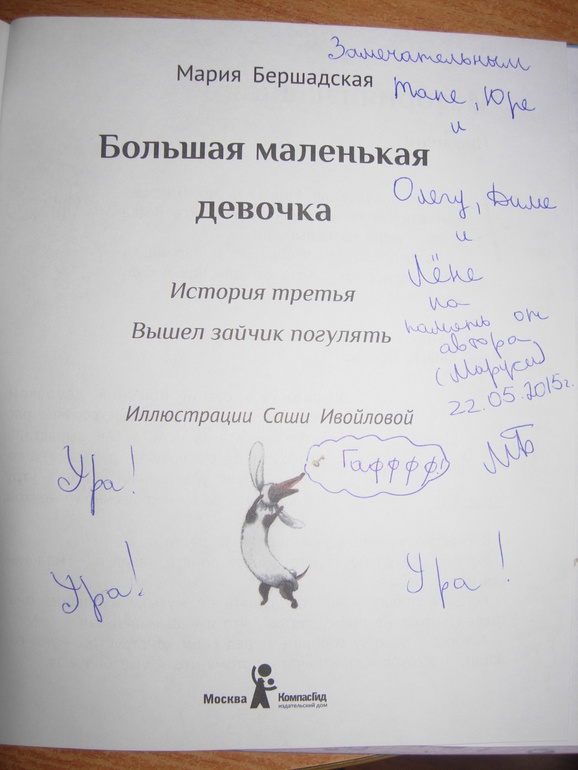 Замечательным
Мария Бершадская
Тане, Юре
и
Большая маленькая
девочка
Олегу, Диме
и
Лёне
на
память от
автора
(Маруси)
22.05.2015г.
МБ
История третья
Вышел зайчик погулять
Иллюстрации Саши Ивойловой
Гафффф!
Ура!
Ура!
Ура!
Москва
КомпасГид
издательский дом